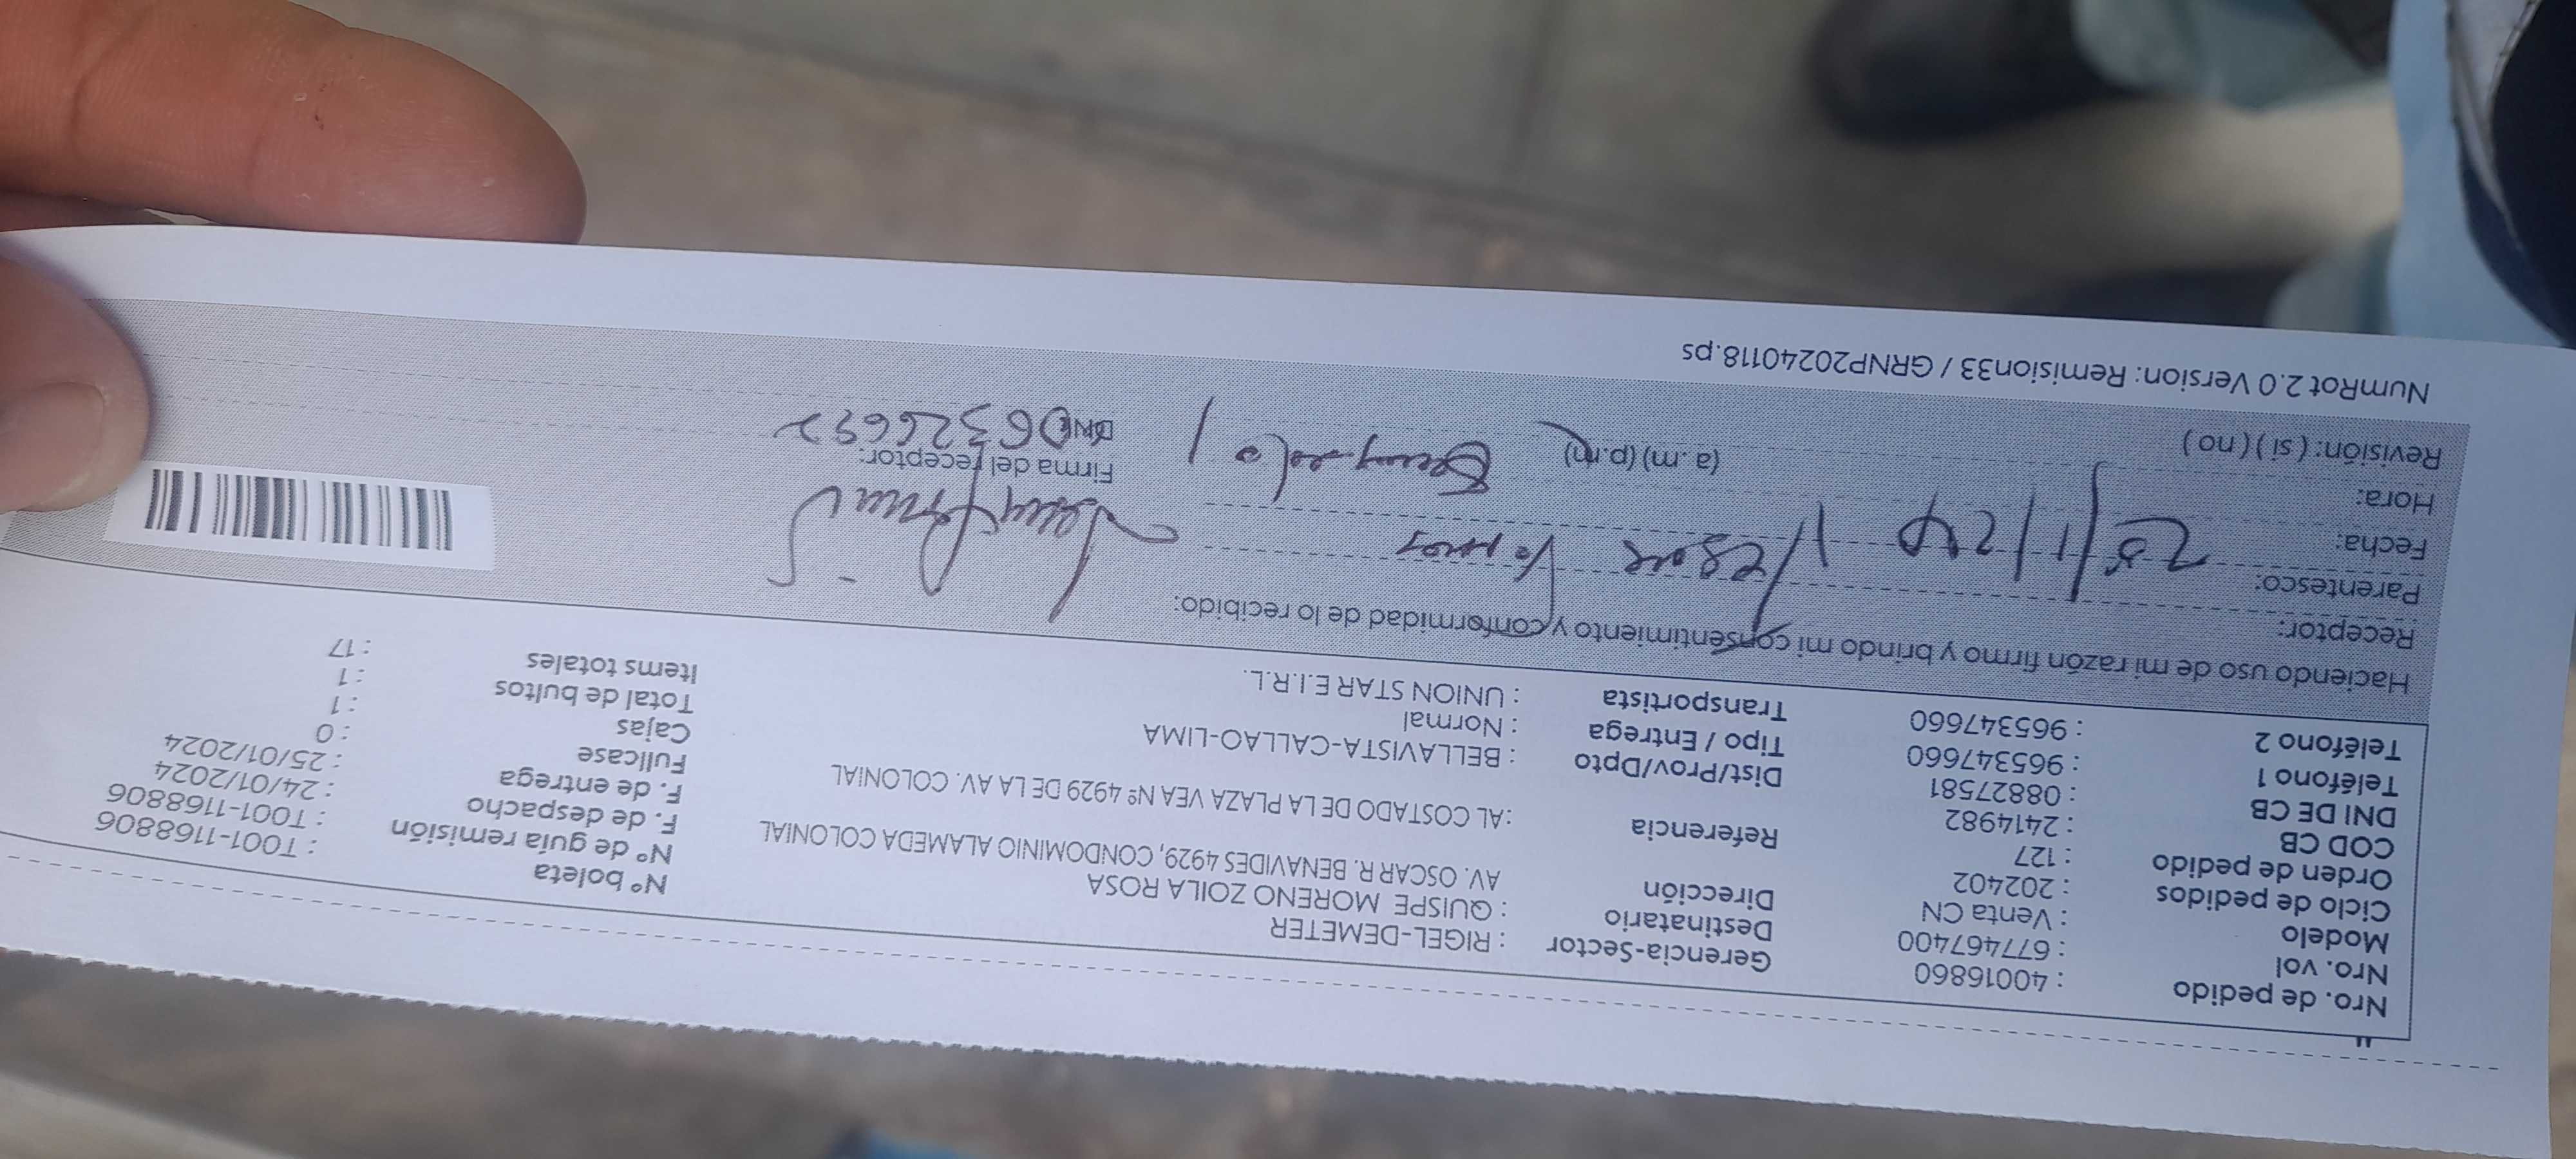 Nro. de pedido : 40016860
Nro. vol : 677467400
Modelo : Venta CN
Ciclo de pedidos : 202402
Orden de pedido : 127
COD CB : 2414982
DNI DE CB : 08827581
Teléfono 1 : 965347660
Teléfono 2 : 965347660
Gerencia-Sector : RIGEL-DEMETER
Destinatario : QUISPE MORENO ZOILA ROSA
Dirección AV. OSCAR R. BENAVIDES 4929, CONDOMINIO ALAMEDA COLONIAL
Referencia : AL COSTADO DE LA PLAZA VEA Nº 4929 DE LA AV. COLONIAL
Dist/Prov/Dpto : BELLAVISTA-CALLAO-LIMA
Tipo / Entrega : Normal
Transportista : UNION STAR E.I.R.L.
Nº boleta : T001-1168806
Nº de guía remisión : T001-1168806
F. de despacho : 24/01/2024
F. de entrega : 25/01/2024
Fullcase : 0
Cajas : 1
Total de bultos : 1
Items totales : 17
Haciendo uso de mi razón firmo y brindo mi consentimiento y conformidad de lo recibido:
Receptor:
Parentesco:
Fecha: 25/1/24
Hora: (a.m) (p.m)
Revisión: ( si ) ( no )
Firma del receptor:
DNI 06326692
NumRot 2.0 Version: Remision33 / GRNP20240118.ps